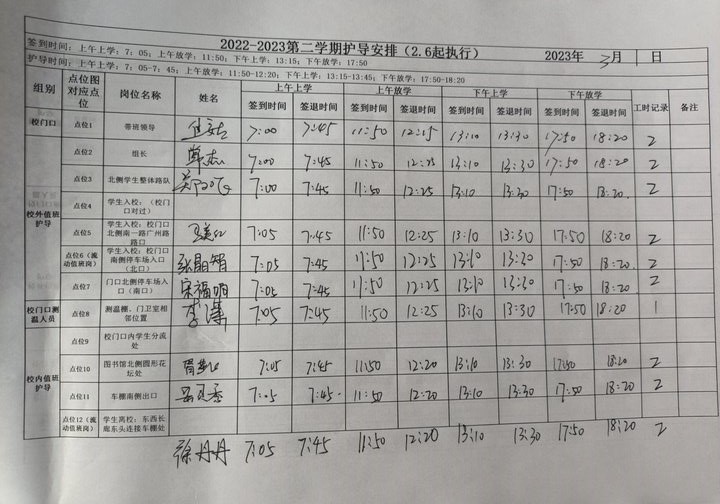 2022-2023第二学期护导安排（2.6起执行） 2023年 3月 日
签到时间：上午上学：7：05；上午放学：11:50；下午上学：13:15；下午放学：17:50
护导时间：上午上学：7：05-7；45；上午放学：11:50-12:20；下午上学：13:15-13:45；下午放学：17:50-18:20
组别 点位图对应点位 岗位名称 姓名 上午上学 上午放学 下午上学 下午放学 工时记录 备注
签到时间 签退时间 签到时间 签退时间 签到时间 签退时间 签到时间 签退时间
校门口 点位1 带班领导 7:00 7:45 11:50 12:15 13:10 13:30 17:50 18:20 2
点位2 组长 7:00 7:45 11:50 12:25 13:10 13:30 17:50 18:20 2
校外值班护导
点位3 北侧学生整体路队 7:00 7:45 11:50 12:25 13:10 13:30 17:50 18:20 2
点位4 学生入校：（校门口对过）
点位5 学生入校：校门口北侧南一路广州路路口 7:05 7:45 11:50 12:25 13:10 13:30 17:50 18:20 2
点位6（流动值班岗） 学生入校：校门口南侧停车场入口（北口） 张晶智 7:05 7:45 11:50 12:25 13:10 13:30 17:50 18:20 2
点位7 门口北侧停车场入口（南口） 宋福明 7:05 7:45 11:50 12:25 13:10 13:30 17:50 18:20 2
校门口测温人员 点位8 测温棚、门卫室相邻位置 李潇 7:05 7:45 11:50 12:25 13:10 13:30 17:50 18:20 1
校内值班护导
点位9 校门口内学生分流处
点位10 图书馆北侧圆形花坛处 7:05 7:45 11:50 12:20 13:10 13:30 17:50 18:20 2
点位11 车棚南侧出口 7:05 7:45 11:50 12:20 13:10 13:30 17:50 18:20 2
点位12（流动值岗） 学生离校：东西长廊东头连接车棚处
徐丹丹 7:05 7:45 11:50 12:20 13:10 13:30 17:50 18:20 2